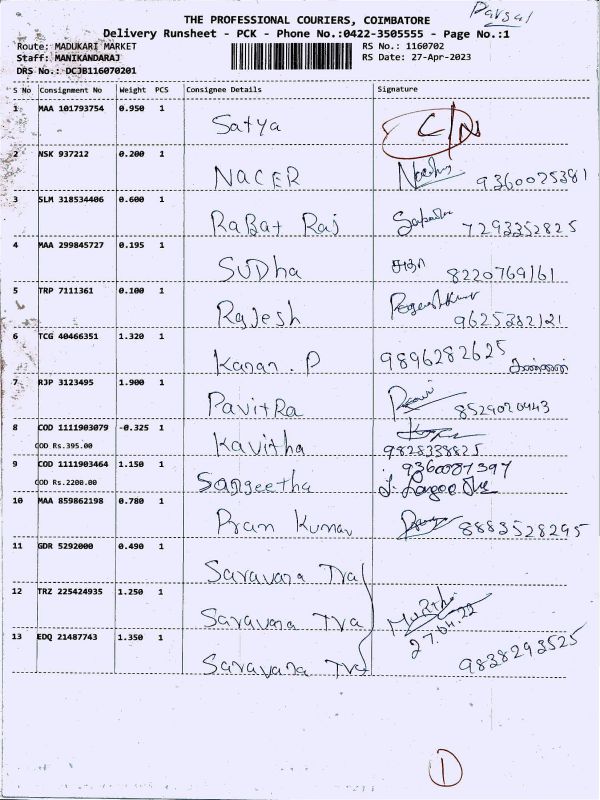 Parsal
THE PROFESSIONAL COURIERS, COIMBATORE
Delivery Runsheet - PCK - Phone No.:0422-3505555 - Page No.:1
Route: MADUKARI MARKET RS No.: 1160702
Staff: MANIKANDARAJ RS Date: 27-Apr-2023
DRS No.: DCJB116070201
S No Consignment No Weight PCS Consignee Details Signature
1 MAA 101793754 0.950 1 Satya C/N
2 NSK 937212 0.200 1 NACER 9360025381
3 SLM 318534406 0.600 1 RaBat Raj 7293352825
4 MAA 299845727 0.195 1 SUDha சுதா 8220769161
5 TRP 7111361 0.100 1 Rajesh 9625382121
6 TCG 40466351 1.320 1 Kanan . P 9896282625
7 RJP 3123495 1.900 1 PavitRa 8529020443
8 COD 1111903079 -0.325 1 Kavitha 9828338825
COD Rs.395.00
9 COD 1111903464 1.150 1 Sangeetha 9360087397
COD Rs.2200.00
10 MAA 859862198 0.780 1 Pran Kumar 8883528295
11 GDR 5292000 0.490 1 Saravana Tra
12 TRZ 225424935 1.250 1 Saravana Tra MuRThi
27.04.22
13 EDQ 21487743 1.350 1 Saravana Tra 9838293525
1